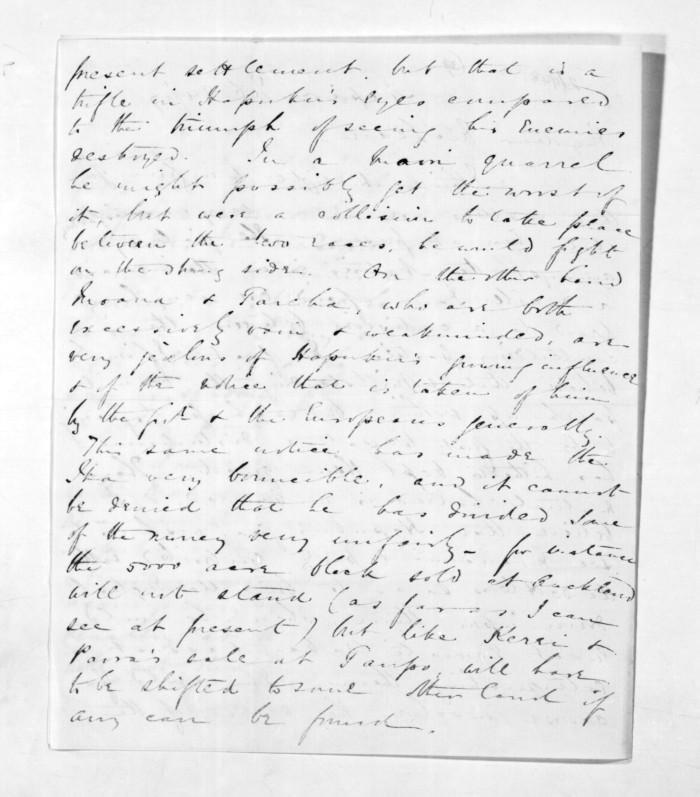 present settlement, but that is a
trifle in Hapuku's eyes compared
to the triumph of seeing his Enemies
destroyed. In a Maori quarrel
he might possibly get the worst of
it, but were a collision to take place
between the two races, he would fight
on the strong side. On the other hand
Moana & Tareha, who are both
excessively vain & weakminded, are
very jealous of Hapuku's growing influence
& of the notice that is taken of him
by the Govt. & the Europeans generally.
This same notice has made the
Ika very bounceible, and it cannot
be denied that he has divided some
of the money very unfairly - for instance
the 5000 acre block sold at Auckland
will not stand (as far as I can
see at present) but like Kerei &
Paora's sale at Taupo, will have
to be shifted to some other land if
any can be found.